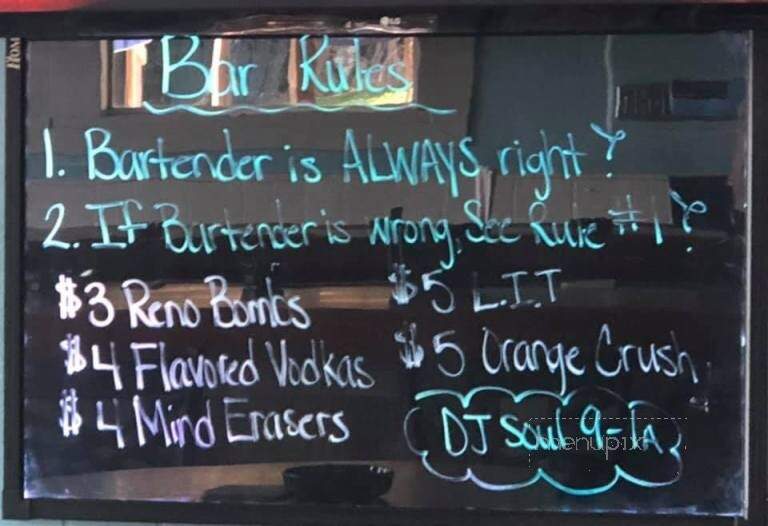 LG
Bar Rules
1. Bartender is ALWAYS right!
2. If Bartender is wrong, See Rule #1!
$3 Reno Bombs
$5 L.I.T
$4 Flavored Vodkas
$5 Orange Crush
$4 Mind Erasers
DJ Soul 9-1A
menupix